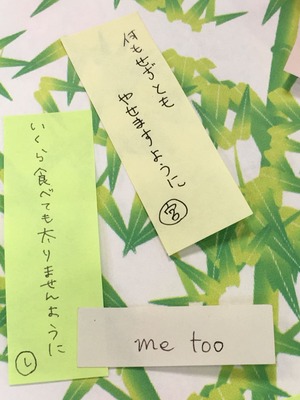 何もせずとも
やせますように
宮
いくら食べても太りませんように
し
me too